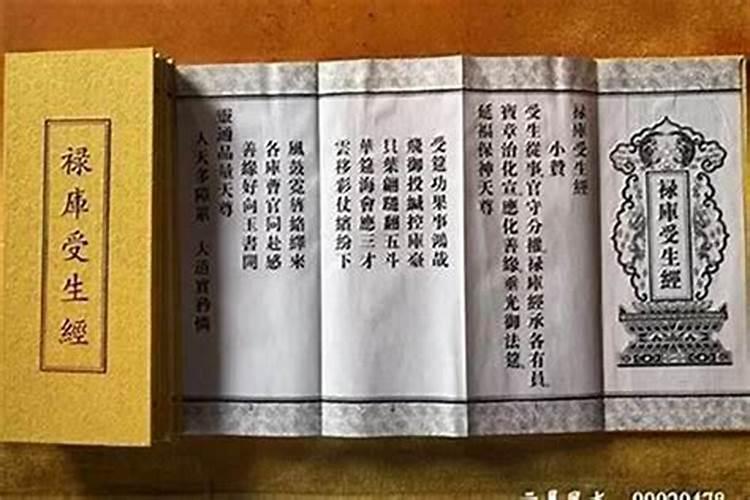 禄庫受生經
禄庫受生經
禄庫受生經
小贊
受生從事官守分權祿庫經承各有員
寶章治化宣應化善緣垂光御法筵
延福保神天尊
受筵功果事鴻哉
飛御投緘控庫臺
貝葉翩躚翻五斗
華筵海會應三才
雲移彩仗繽紛下
風鼓霓旌絡繹來
各庫曹官同赴感
善緣好向玉書開
靈通品量天尊
人天多障第
大道實矜憐